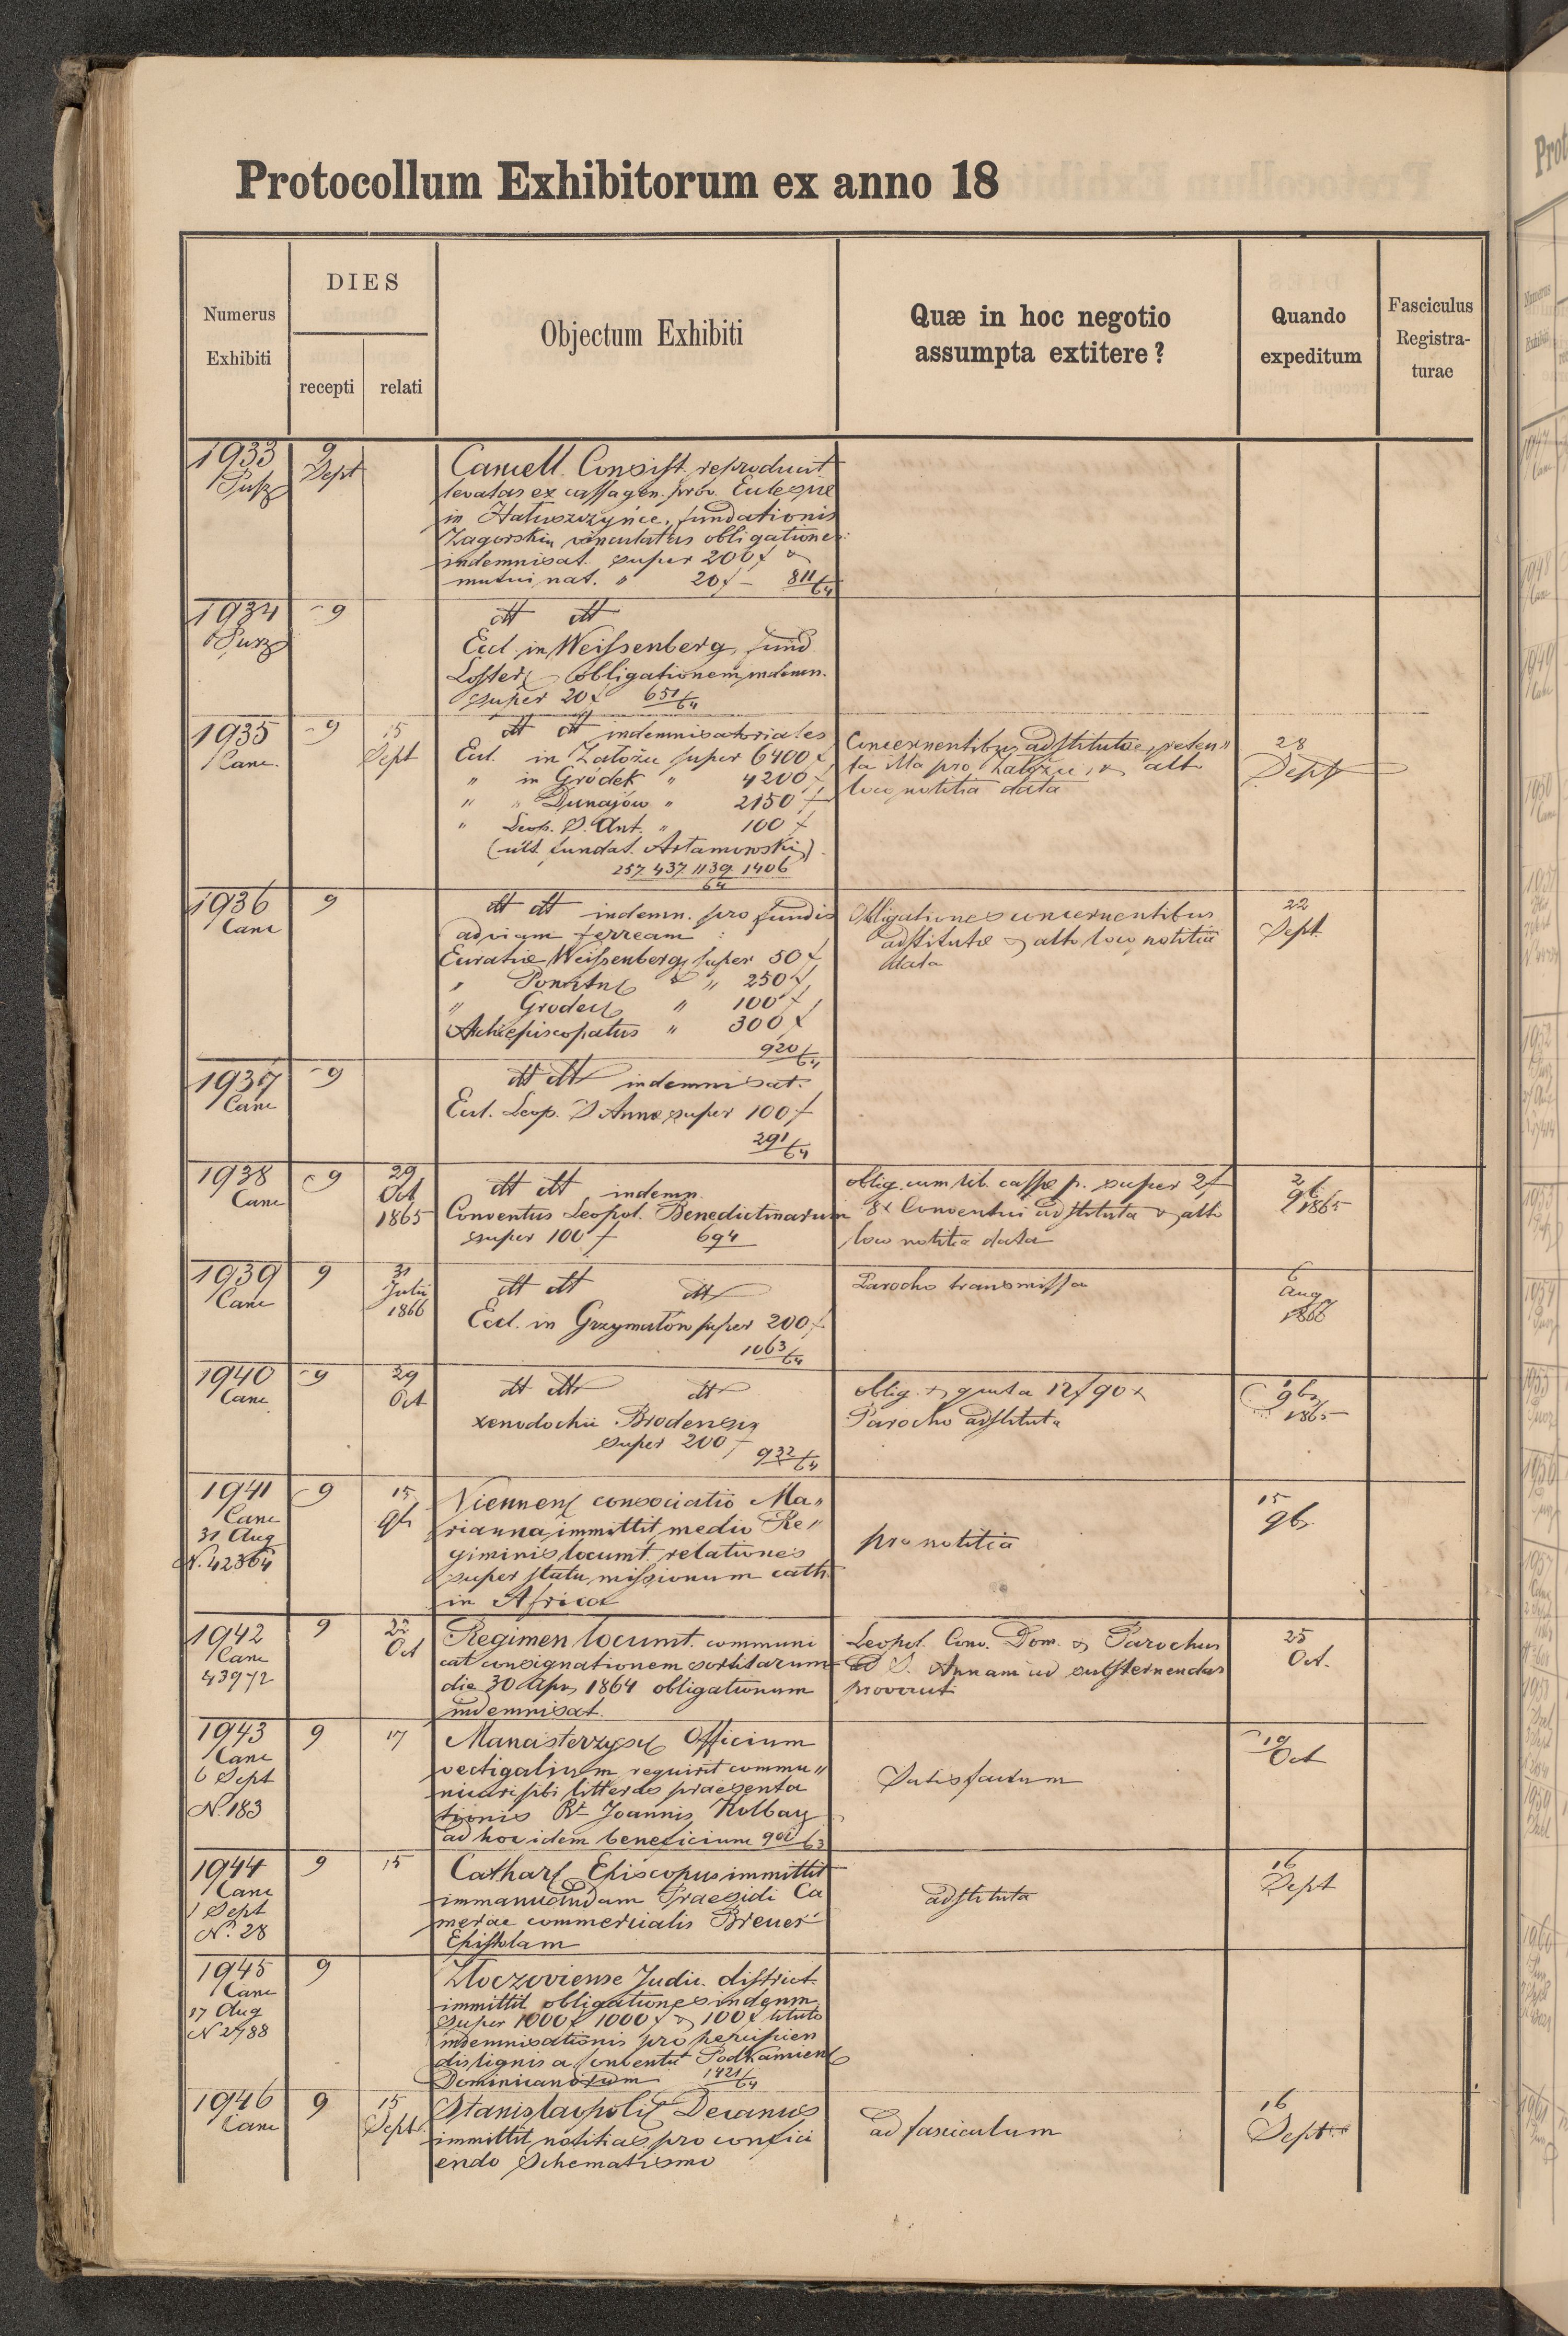 Protocollum Exhibitorum ex anno 18
Numerus Exhibiti
DIES
recepti
relati
Objectum Exhibiti
Quæ in hoc negotio
assumpta extitere?
Quando
expeditum
Fasciculus
Registra-
turae
1933
9
Sept
Cancell. Consist. reproducit
levatas ex cassa gen. prov. Eclesiæ
in Hałuszczyńce, fundationis
Zagorskiu vinculatas obligationes:
indemnisat. super 200 f &
mutui nat. " 20 f – 811/64
1934
9
dtt dtt
Eccl. in Weissenberg, fund
obligationem indemn.
super 20 f 651/64
1935
Canc.
9
15
Sept
dtt dtt indemnisatoriales
Eccl. in Załoźce super 6400 f
" in Gródek " 4200 f
" " Dunajów " 2150 f
" Leop. S. Ant. " 100 f
(ult. fundat. Artamowski)
257. 437. 1139. 1406
64
Concernentibus adstitutæ, reten"
ta illa pro Załoźce, & alto
loco notitia data
28
Sept
1936
Canc
9
dtt dtt indemn. pro fundis
ad viam ferream :
Curatiæ Weissenberg super 50 f
" " 250 f
" Grodec " 100 f
Archiepiscopatus " 300 f
920/64
Obligationes concernentibus
adstitutæ & alto loco notitia
data
22
Sept.
1937
Canc
9
dtt dtt indemnisat.
Eccl. Leop. S Annæ super 100 f
291/64
1938
Canc
9
29
Oct
1865
dtt dtt indemn.
Conventus Leopol. Benedictinarum
super 100 f 694
oblig. cum lib. cassæ p. super 2 f
8x Conventui adstituta & alto
loco notitia data
2
9b
1865
1939
Canc
9
31
Julii
1866
dtt dtt dtt
Eccl. in Grzymałów super 200 f
1063/64
Parocho transmissa
6
Aug
1866
1940
Canc
9
29
Oct
dtt dtt dtt
xenodochii Brodensis
super 200 f
932/64
oblig. & 12 f 90 x
Parocho adstituta
9b
1865
1941
Canc
31 Aug
N. 42364
9
15
9b
Viennens consociatio Ma"
rianna, immittit, medio Re"
giminis locumt. relationes
super statu missionum cath
in Africa
pro notitia
15
9b
1942
Canc
43972
9
22
Oct
Regimen locumt. communi
cat consignationem sortitarum
die 30 Apr. 1864 obligationum
indemnisat.
Leopol. Conv. Dom. & Parochus
ad S. Annam ad substernendas
provocati
25
Oct.
1943
Canc
6 Sept
N. 183
9
17
Manasterzysc Officium
vectigalium requirit commu"
nicari sibi litteras praesenta
tionis Rt Joannis Kolbay
ad hoc idem beneficium 900/63
Satisfactum
19
Oct
1944
Canc
1 Sept
N. 28
9
15
Cathars Episcopus immittit
immanuandam Praesidi Ca
merae commercialis Breuer
Epistolam
adstituta
16
Sept
1945
Canc
17 Aug
N 2788
9
Złoczoviense Judic. district.
immittit obligationes indemn.
super 1000 f 1000 f & 100 f titulo
indemnisationis pro percipien
dis lignis a conventu Podkamiens
Dominicanorum 1421/64
1946
Canc
9
15
Sept.
Stanislaopolis Decanus
immittit notitias pro confici
endo Schematismo
ad fasciculum
16
Sept